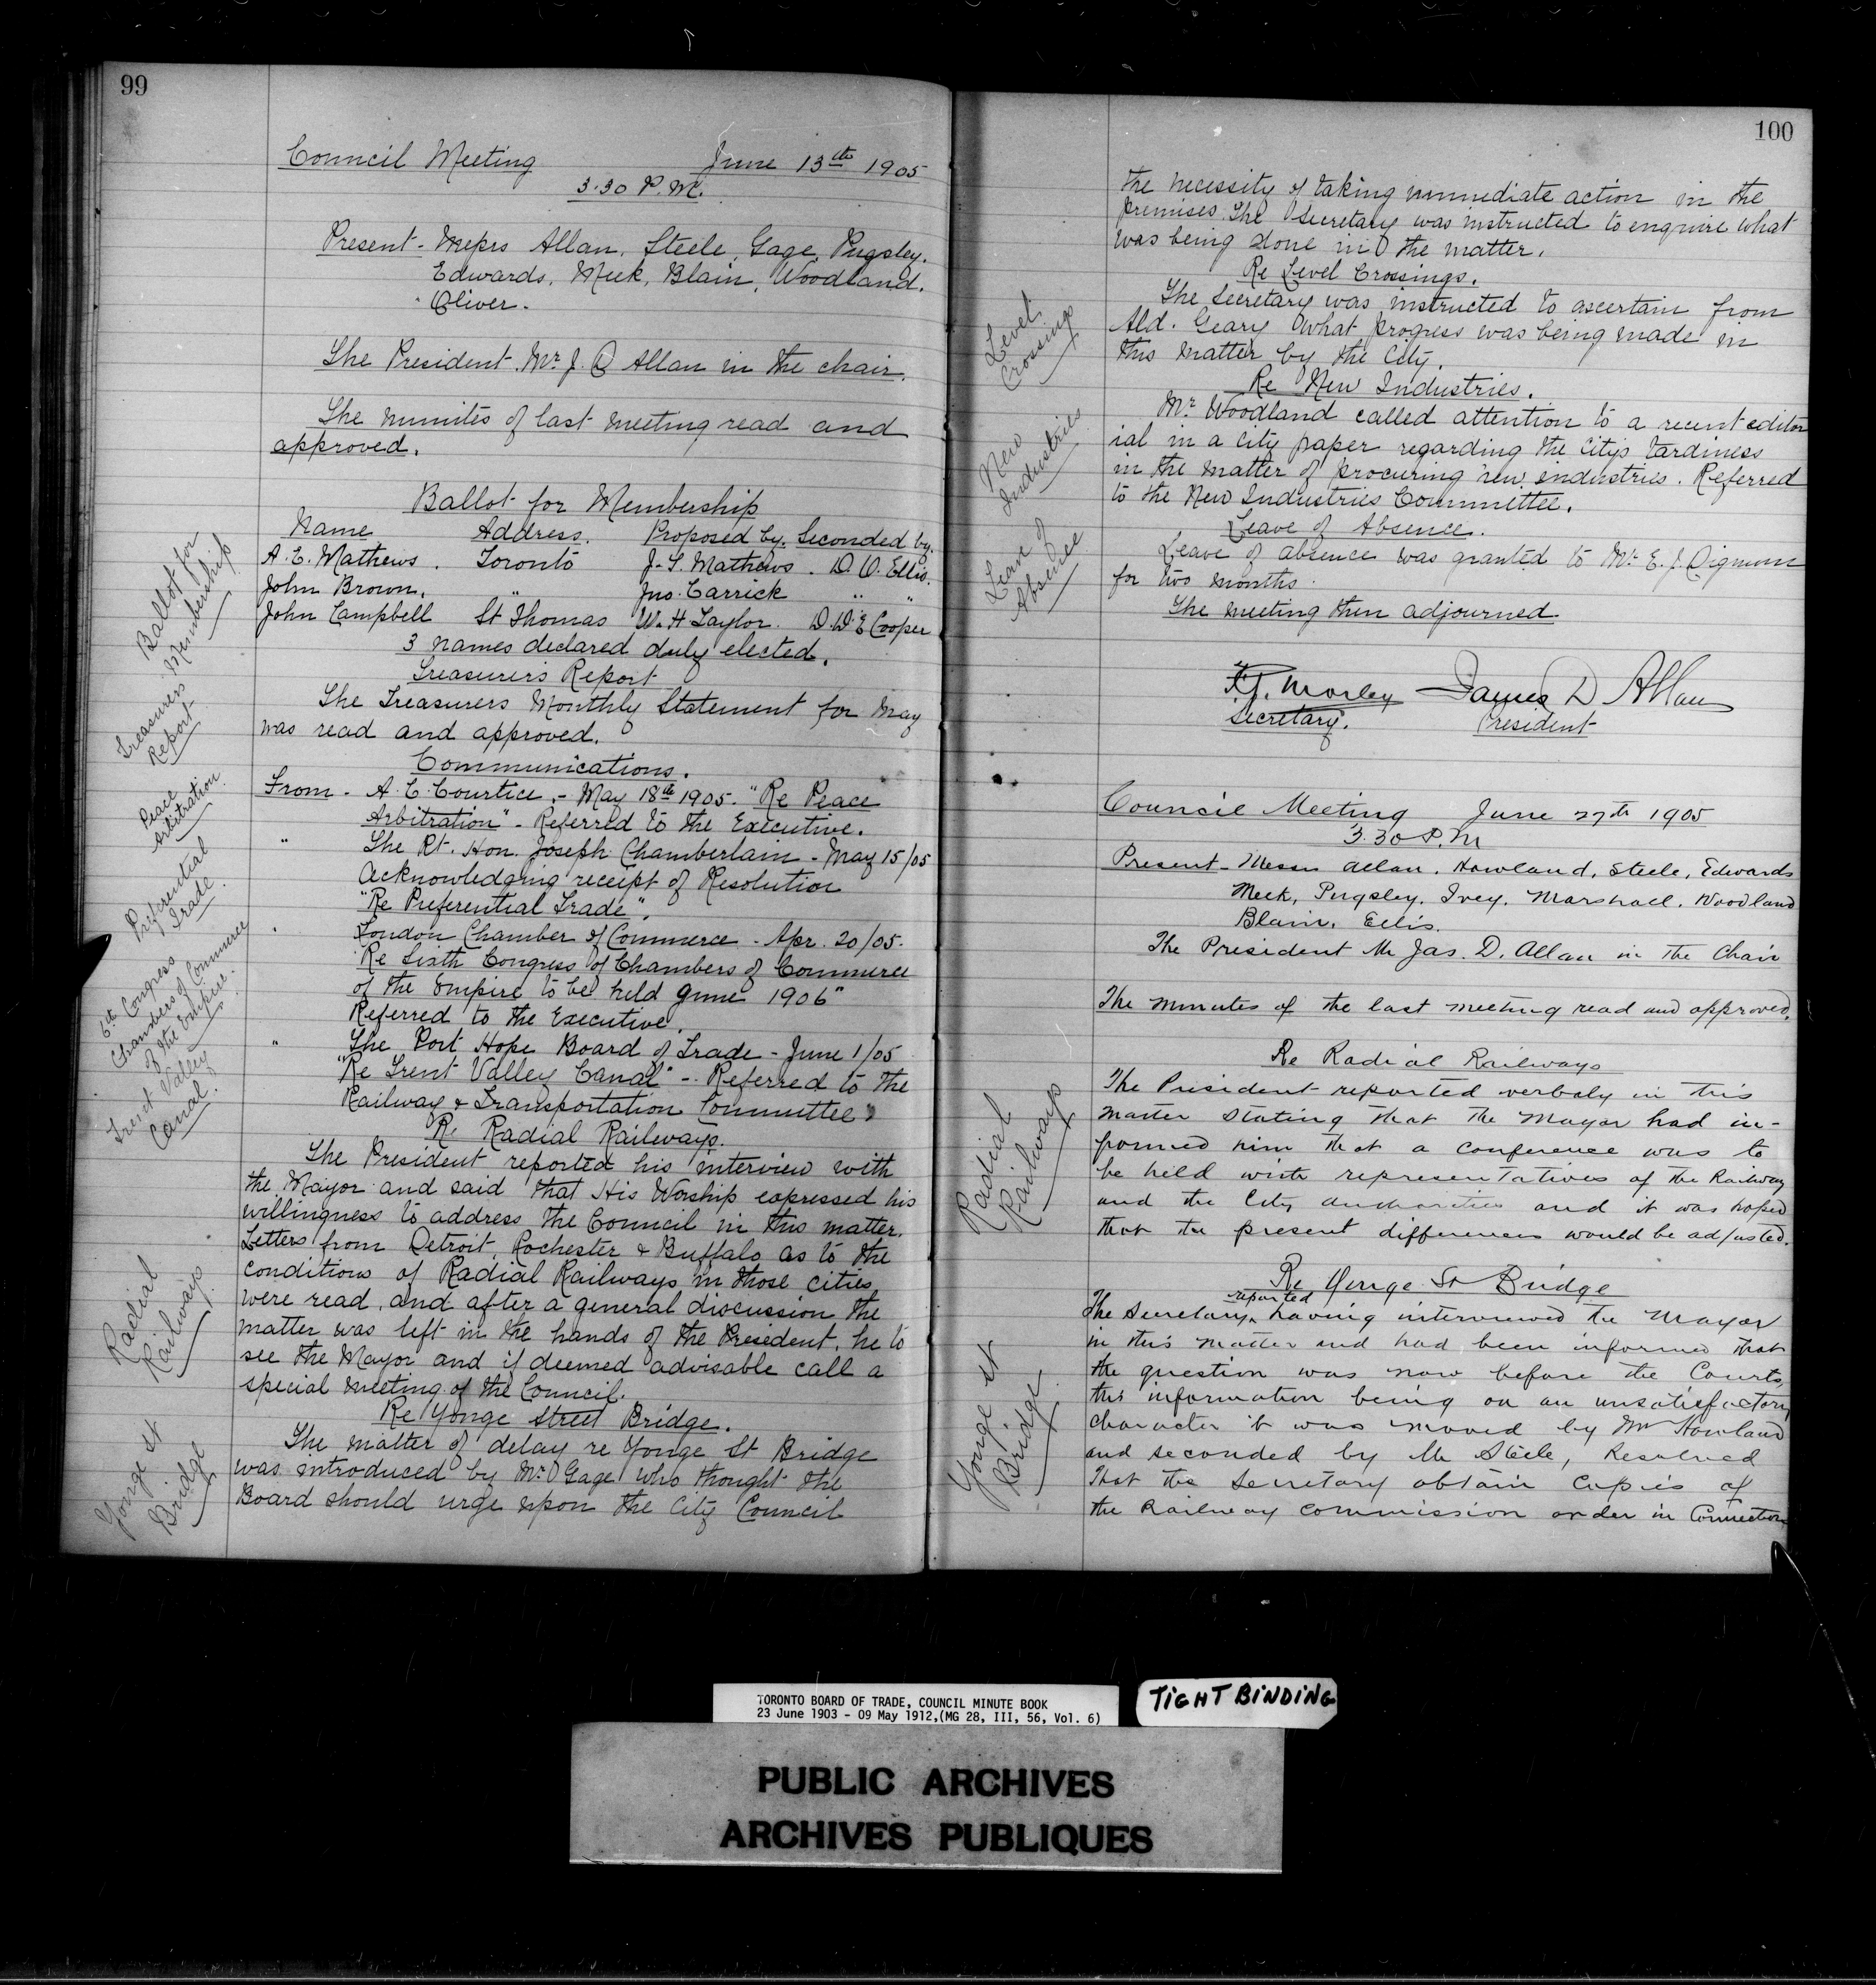 99
Council Meeting June 13th 1905
3.30 P.M.
Present - Messrs Allan, Steele, Gage, Pugsley.
Edwards, Meek, Blain, Woodland.
Oliver.
The President. Mr. J. D Allan in the chair.
The minutes of last meeting read and
approved.
Ballot for Membership
Ballot for
Membership
Name Address. Proposed by. Seconded by.
A. E. Mathews. Toronto J. S. Mathews. D. O. Ellis.
John Brown. " Jno. Carrick " "
John Campbell St Thomas W. H Taylor. D. D. E Cooper
3 names declared duly elected.
Treasurers Report
Treasurers
Report
The Treasurers Monthly Statement for May
was read and approved.
Communications.
From - A. C. Courtice. - May 18th 1905. "Re Peace
Arbitration" - Referred to the Executive.
Peace
Arbitration.
" The Rt. Hon. Joseph Chamberlain - May 15/05
Acknowledging receipt of Resolution
"Re Preferential Trade".
Preferential
Trade.
" London Chamber of Commerce - Apr. 20/05.
"Re Sixth Congress of Chambers of Commerce
of the Empire to be held June 1906"
Referred to the Executive.
6th Congress
Chambers of Commerce
of the Empire.
" The Port Hope Board of Trade - June 1/05
"Re Trent Valley Canal" - Referred to the
Railway & Transportation Committee"
Trent Valley
Canal.
Re Radial Railways.
The President reported his interview with
the Mayor and said that His Worship expressed his
willingness to address the Council in this matter.
Letters from Detroit, Rochester & Buffalo as to the
conditions of Radial Railways in those cities
were read, and after a general discussion the
matter was left in the hands of the President, he to
see the Mayor and if deemed advisable call a
special meeting of the Council.
Radial
Railways
Re Yonge Street Bridge.
The matter of delay re Yonge St Bridge
was introduced by Mr. Gage who thought the
Board should urge upon the City Council
Yonge St
Bridge
100
the necessity of taking immediate action in the
premises. The Secretary was instructed to enquire what
was being done in the matter.
Re Level Crossings.
The Secretary was instructed to ascertain from
Ald. Geary what progress was being made in
this matter by the City.
Level
Crossings
Re New Industries.
Mr. Woodland called attention to a recent editor
ial in a city paper regarding the Citys tardiness
in the matter of procuring new industries. Referred
to the New Industries Committee.
New
Industries
Leave of Absence.
Leave of absence was granted to Mr. E. J. Dignum
for two months.
Leave of
Absence
The meeting then adjourned.
F. G. Morley James D Allan
Secretary. President
Council Meeting June 27th 1905
3.30 P.M
Present - Messrs Allan, Howland, Steele, Edwards
Meek, Pugsley, Ivey, Marshall, Woodland
Blain, Ellis.
The President Mr Jas. D. Allan in the Chair
The minutes of the last meeting read and approved.
Re Radial Railways
The President reported verbaly in this
matter stating that the Mayor had in-
formed him that a conference was to
be held with representatives of the Railway
and the City authorities and it was hoped
that the present differences would be adjusted.
Radial
Railways
Re Yonge St Bridge
reported
The Secretary having interviewed the Mayor
in this matter and had been informed that
the question was now before the Courts,
this information being on an unsatisfactory
character it was moved by Mr Howland
and seconded by Mr Steele, Resolved
That the Secretary obtain copies of
the Railway Commission order in Connection
Yonge St
Bridge
TORONTO BOARD OF TRADE, COUNCIL MINUTE BOOK
23 June 1903 - 09 May 1912,(MG 28, III, 56, Vol. 6)
TIGHT BINDING
PUBLIC ARCHIVES
ARCHIVES PUBLIQUES